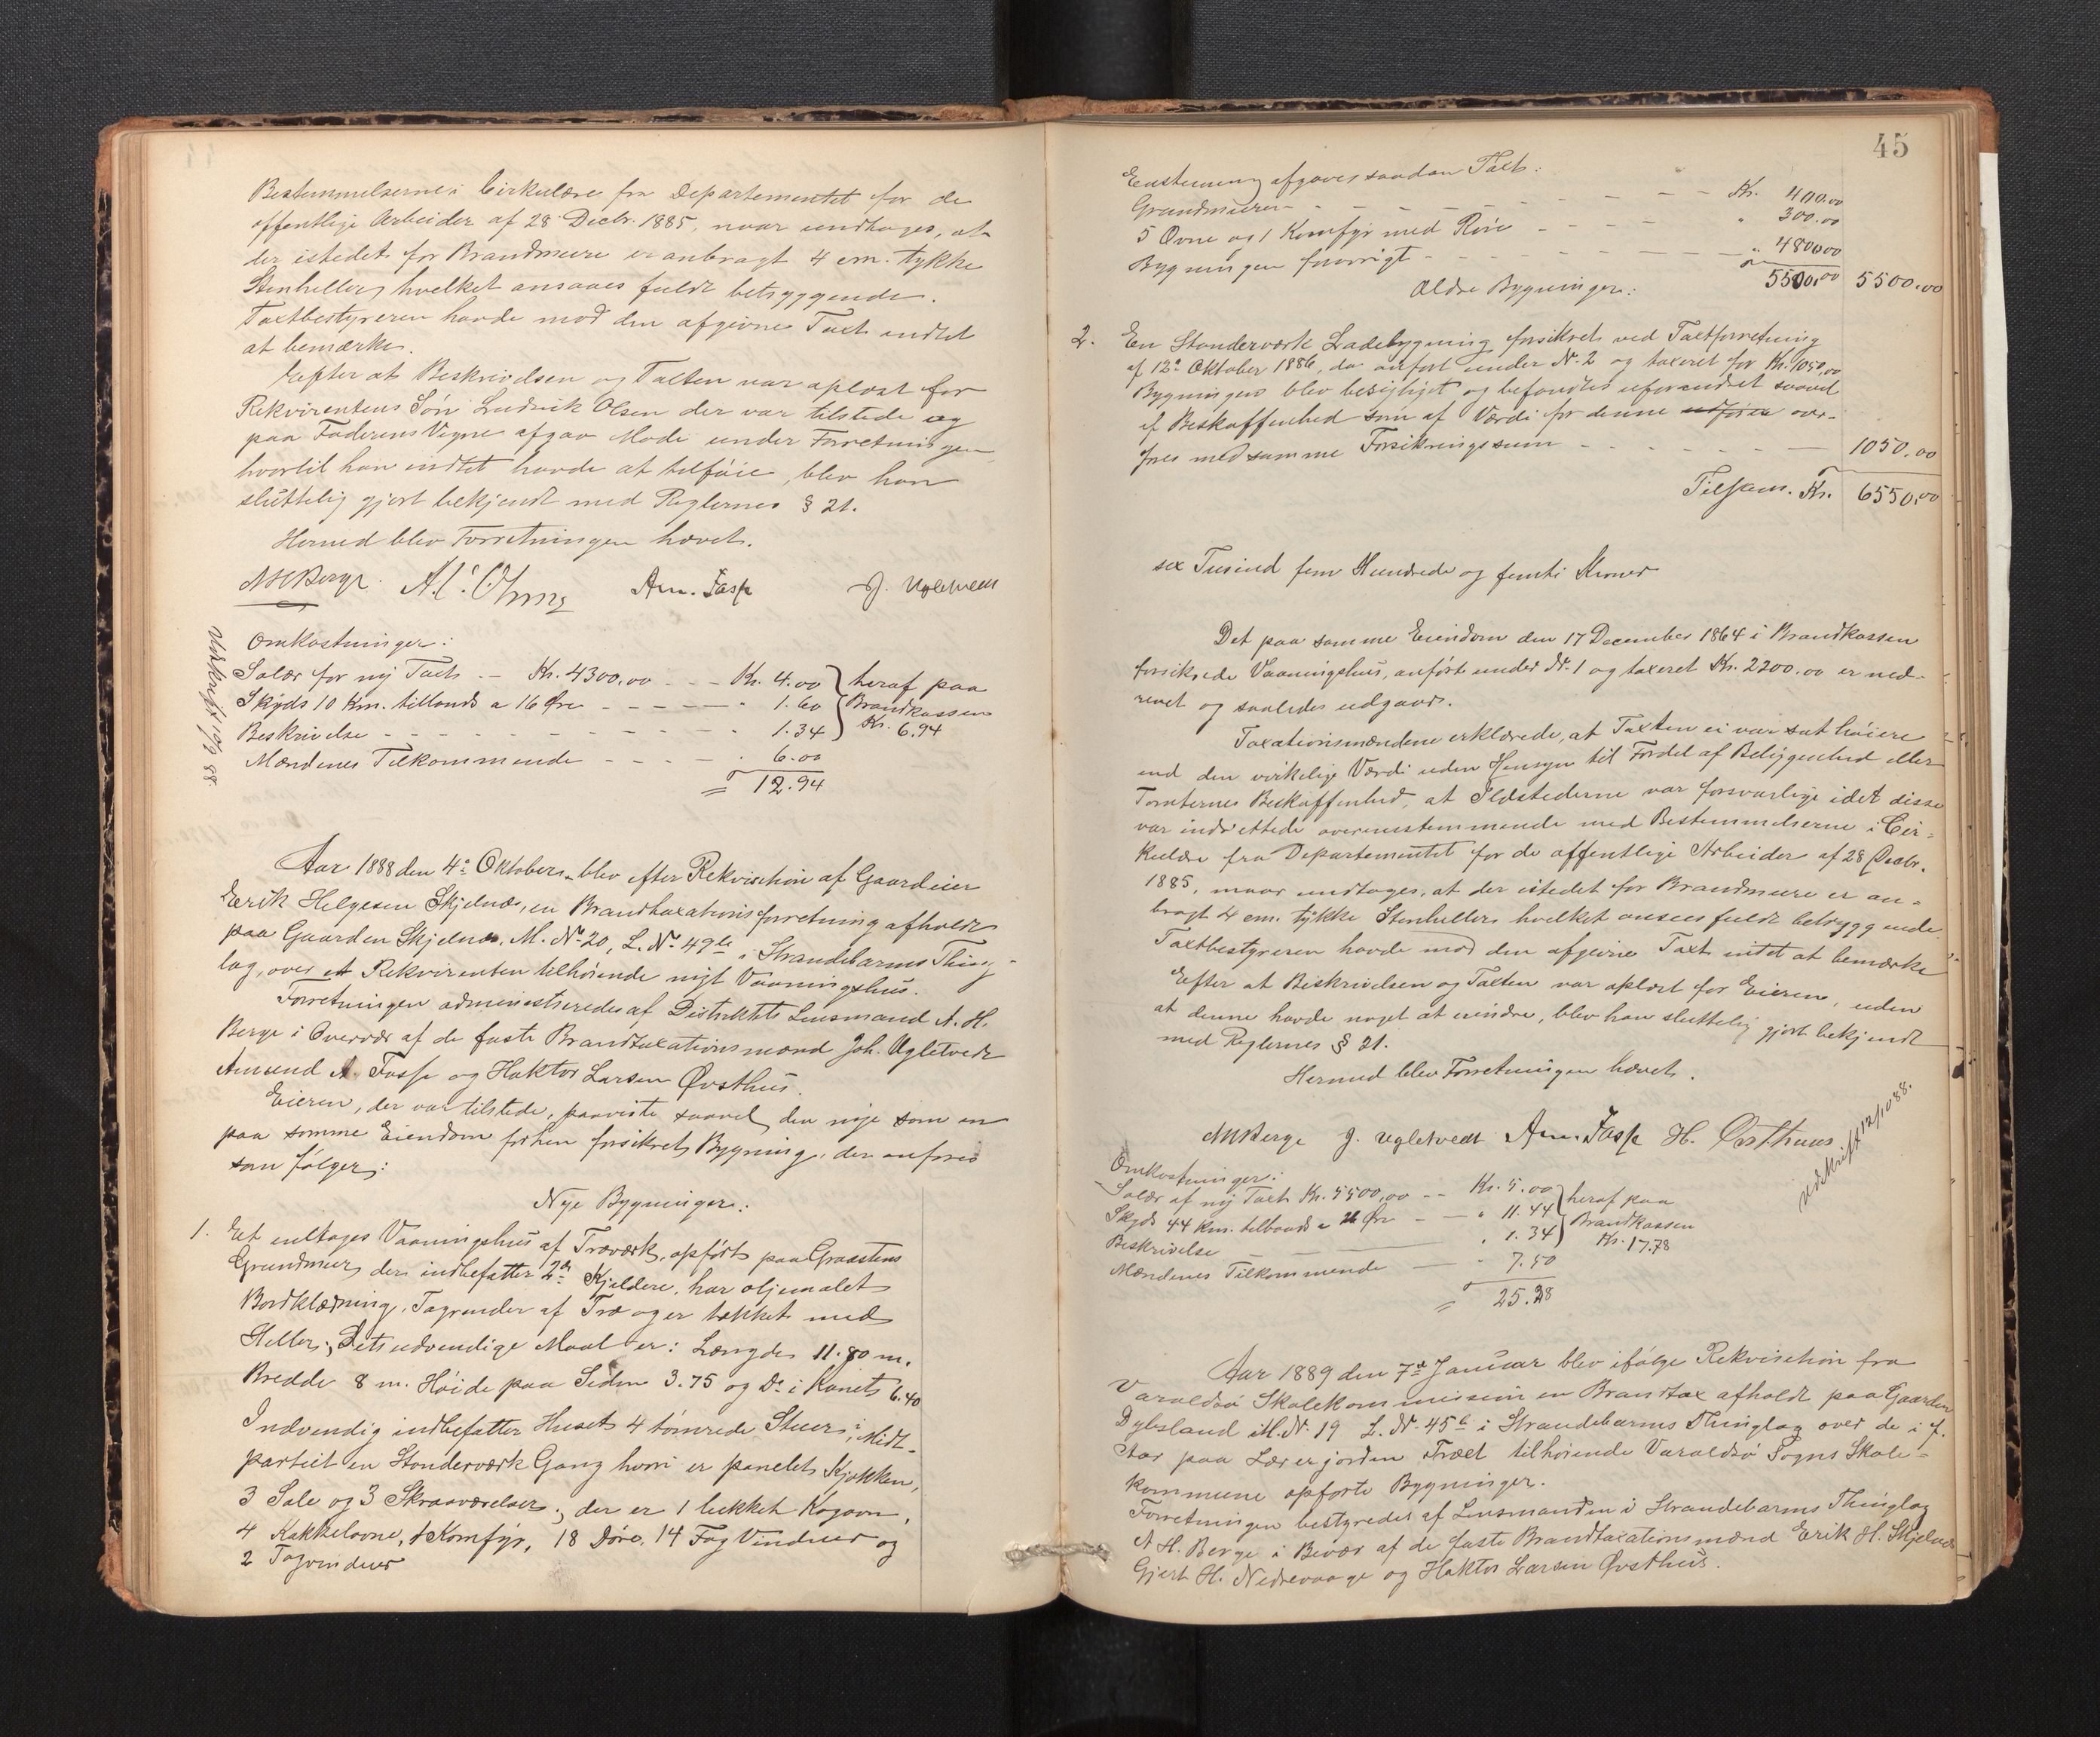 Bestemmelserne i Cirkulære fra Departementet for de
offentlige Arbeider af 28 Decbr. 1885, naar undtages, at
der istedet for Brandmure er anbragt 4 cm. tykke
Stenheller, hvilket ansaaes fuldt betryggende.
Taxtbestyreren havde mod den afgivne Taxt indtet
at bemærke.
Efter at Beskrivelsen og Taxten var oplæst for
Rekvirentens Søn Ludvik Olsen der var tilstede og
paa Faderens Vegne afgav Møde under Forretningen
hvortil han indtet havde at tilføie, blev han
sluttelig gjort bekjendt med Reglernes § 21.
Hermed blev Forretningen hævet.
AHBerge. Am. Fosse J. Ugletvedt
Omkostninger:
Salær for ny Taxt — Kr. 4300,00 - - - Kr. 4.00 } heraf paa
Skyds 10 Km. tillands a 16 Øre - - - - - " 1.60 } Brandkassen
Beskrivelse - - - - - - - - - - - " 1.34 } Kr. 6.94
Mændenes Tilkommende - - - - . 6.00
= 12.94
Udskrift 10/9 88.
Aar 1888 den 4de Oktober blev efter Rekvisition af Gaardeier
Erik Helgesen Skjelnæs, en Brandtaxationsforretning afholdt
paa Gaarden Skjelnæs, M. No 20, L. No 49b i Strandebarms Thing-
lag, over et Rekvirenten tilhørende nyt Vaaningshus.
Forretningen administreredes af Distriktets Lensmand A. H.
Berge i Overvær af de faste Brandtaxationsmænd Joh. Ugletvedt
Amund A. Fosse og Haktor Larsen Øvsthus.
Eieren, der var tilstede, paaviste saavel den nye som en
paa samme Eiendom forhen forsikret Bygning, der anføres
som følger:
Nye Bygninger:
1. Et enetages Vaaningshus af Træværk, opført paa Graastens
Grundmur, der indbefatter 2de Kjeldere, har oljemalet
Bordklædning, Tagrender af Træ og er tækket med
Heller; Dets udvendige Maal er: Længde 11.80 m.
Bredde 8 m. Høide paa Siden 3.75 og Do i Rønet 6.40
Indvendig indbefatter Huset 4 tømrede Stuer, i Midt-
partiet en Stenderværk Gang hvori er panelet Kjøkken,
3 Sale og 3 Skraaværelser; der er 1 lukket Kogovn,
4 Kakkelovne, 1 Komfyr, 18 Døre, 14 Fag Vinduer og
2 Tagvinduer
45
Enstemmig afgaves saadan Taxt:
Grundmuren - - - - - - - - - Kr. 400.00
5 Ovne og 1 Komfyr med Rør - - - - " 300.00
Bygningen forøvrigt - - - - - - - " 4800.00
5500.00 5500.00
Ældre Bygninger:
2. En Stenderværk Ladebygning forsikret ved Taxtforretning
af 12te Oktober 1886, da anført under No 2 og taxeret for Kr. 1050,00
Bygningen blev besigtiget og befandtes uforandret saavel
af Beskaffenhed som af Værdi for denne udføres over-
føres med samme Forsikringssum - - - - 1050.00
Tilsam. Kr. 6550.00
sex Tusind fem Hundrede og femti Kroner
Det paa samme Eiendom den 17 December 1864 i Brandkassen
forsikrede Vaaningshus, anført under No 1 og taxeret Kr. 2200.00 er ned-
revet og saaledes udgaar.
Taxationsmændene erklærede, at Taxten ei var sat høiere
end den virkelige Værdi uden Hensyn til Fordel af Beliggenhed eller
Tomternes Beskaffenhed, at Ildstederne var forsvarlige idet disse
var indrettede overensstemmende med Bestemmelserne i Cir-
kulære fra Departementet for de offentlige Arbeider af 28 Decbr.
1885, naar undtages, at der istedet for Brandmure er an-
bragt 4 cm. tykke Stenheller hvilket ansees fuldt betryggende.
Taxtbestyreren havde mod den afgivne Taxt intet at bemærke
Efter at Beskrivelsen og Taxten var oplæst for Eieren, uden
at denne havde noget at erindre, blev han sluttelig gjort bekjendt
med Reglernes § 21.
Hermed blev Forretningen hævet.
AHBerge J. Ugletvedt Am. Fosse H. Øvsthuus
Udskrift 12/10 88.
Omkostninger:
Salær af ny Taxt Kr. 5500,00 - - Kr. 5.00 } heraf paa
Skyds 44 Km. tilvands a 26 Øre - - " 11.44 } Brandkassen
Beskrivelse - - " 1.34 } Kr. 17.78
Mændenes Tilkommende - - " 7.50
= 25.28
Aar 1889 den 7de Januar blev ifølge Rekvisition fra
Varaldsø Skolekommission en Brandtax afholdt paa Gaarden
Dybsland M. No 19 L. No 45b i Strandebarms Thinglag over de i f.
Aar paa Lærerjorden Træet tilhørende Varaldsø Sogns Skole-
kommune opførte Bygninger.
Forretningen bestyredes af Lensmanden i Strandebarms Thinglag
A H. Berge i Bevær af de faste Brandtaxationsmænd Erik H. Skjelnæs
Gjert H. Nedrevaage og Haktor Larsen Øvsthus.